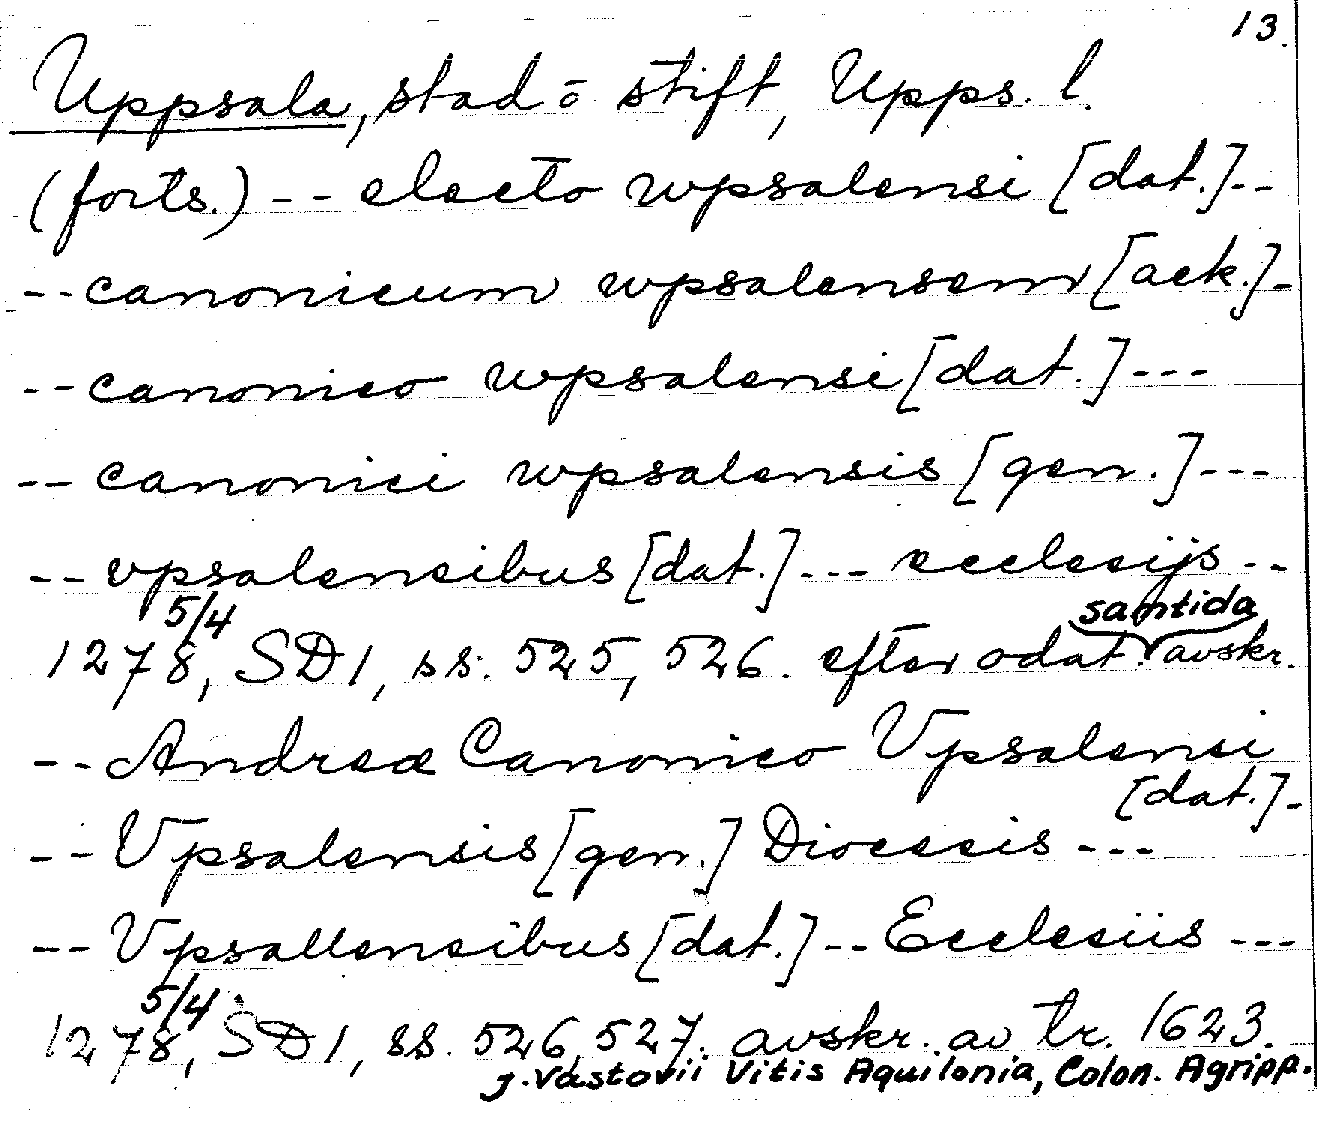 13.
Uppsala, stad o stift, Upps. l.
(forts.) -- electo wpsalensi [dat.]--
--canonicum wpsalensem [ack.]-
--canonico wpsalensi [dat.]---
--canonici wpsalensis [gen.]---
--vpsalensibus [dat.]--- ecclesijs --
samtida
1278 5/4, SD1, ss. 525, 526. efter odat. avskr.
--Andreæ Canonico Vpsalensi
[dat.]-
--Vpsalensis [gen.] Diocesis ---
--Vpsallensibus [dat.]--Ecclesiis ---
1278 5/4, SD1, ss. 526, 527. avskr. av tr. 1623.
J. Vastovii Vitis Aquilonia, Colon. Agripp.